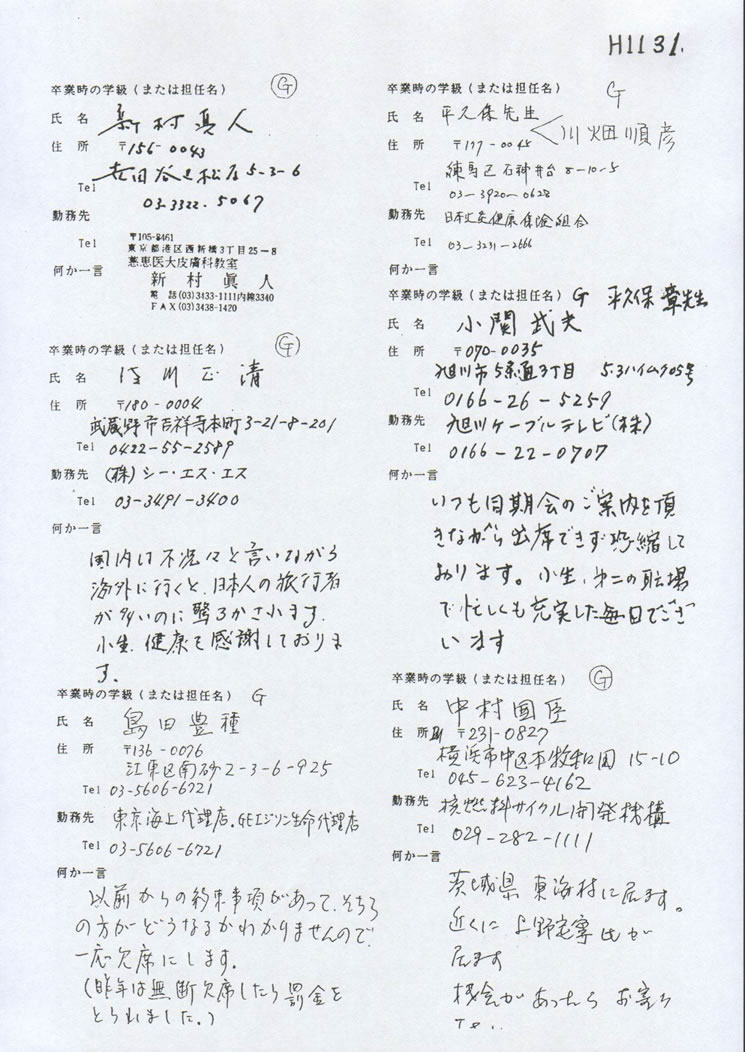 H11 31.
卒業時の学級(または担任名) G
氏 名 新村眞人
住 所 〒156-0043
世田谷区松原5-3-6
Tel 03-3322-5067
勤務先
Tel 〒105-8461
東京都港区西新橋3丁目25-8
何か一言 慈恵医大皮膚科教室
新村 眞人
電 話(03)3433-1111内線3340
FAX(03)3438-1420
卒業時の学級(または担任名) G
氏 名 正清
住 所 〒180-0004
武蔵野市吉祥寺本町3-21-8-201
Tel 0422-55-2589
勤務先 (株)シー・エス・エス
Tel 03-3491-3400
何か一言
国内は不況々と言いながら
海外に行くと、日本人の旅行者
が多いのに驚ろかされます.
小生、健康を感謝しておりま
す.
卒業時の学級(または担任名) G
氏 名 島田豊種
住 所 〒136-0076
江東区南砂2-3-6-925
Tel 03-5606-6721
勤務先 東京海上代理店.GEエジソン生命代理店
Tel 03-5606-6721
何か一言
以前からの約束事項があって、そちら
の方がどうなるかわかりませんので、
一応欠席にします.
(昨年は無断欠席したら罰金を
とられました.)
卒業時の学級(または担任名) G
氏 名 平久保先生 < 川畑順彦
住 所 〒177-0045
練馬区石神井台8-10-5
Tel 03-3920-0628
勤務先 健康保険組合
Tel 03-3231-2666
何か一言
卒業時の学級(または担任名) G 平久保章先生
氏 名 小関武夫
住 所 〒070-0035
旭川市5条通3丁目 5.3ハイム405号
Tel 0166-26-5259
勤務先 旭川ケーブルテレビ(株)
Tel 0166-22-0707
何か一言
いつも同期会のご案内を頂
きながら出席できず恐縮して
おります。小生、第二の職場
で忙しくも充実した毎日でござ
います
卒業時の学級(または担任名) G
氏 名 中村国臣
住 所 〒231-0827
横浜市中区本牧和田 15-10
Tel 045-623-4162
勤務先 核燃料サイクル開発機構
Tel 029-282-1111
何か一言
茨城県 東海村に居ます。
近くに 上野 氏が
居ます
機会があったら お寄り